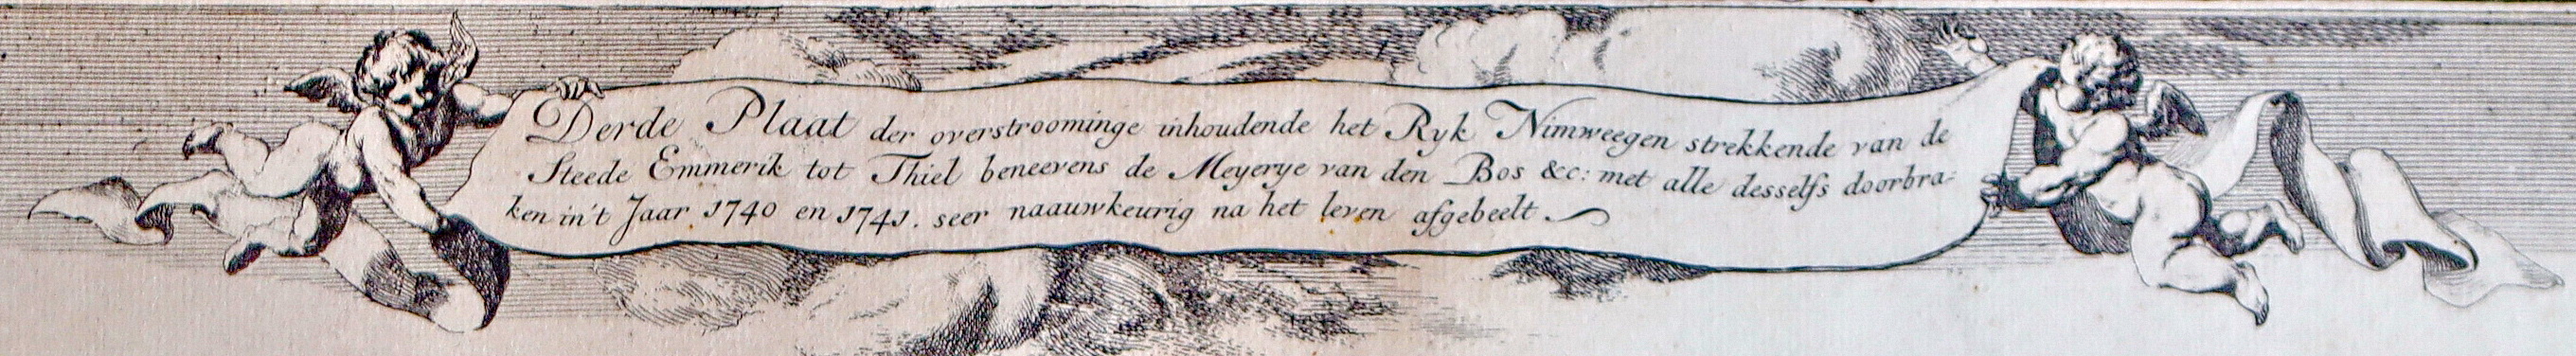 Derde Plaat der overstroominge inhoudende het Ryk Nimweegen strekkende van de
Steede Emmerik tot Thiel beneevens de Meyerye van den Bos &c: met alle desselfs doorbra-
ken in't Jaar 1740 en 1741. seer naauwkeurig na het leven afgebeelt